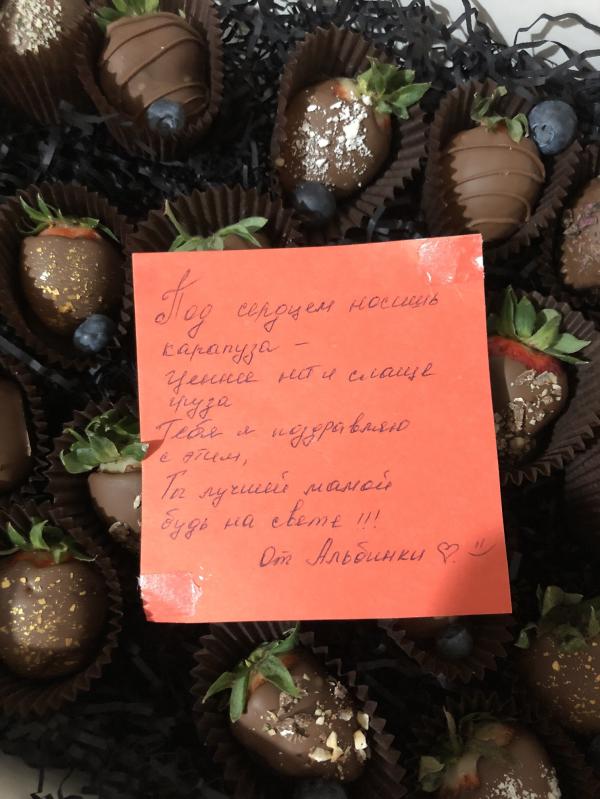 Под сердцем носишь
карапуза –
Ценнее нет и слаще
груза
Тебя я поздравляю
с этим,
Ты лучшей мамой
будь на свете !!!
От Альбинки ♡. :)